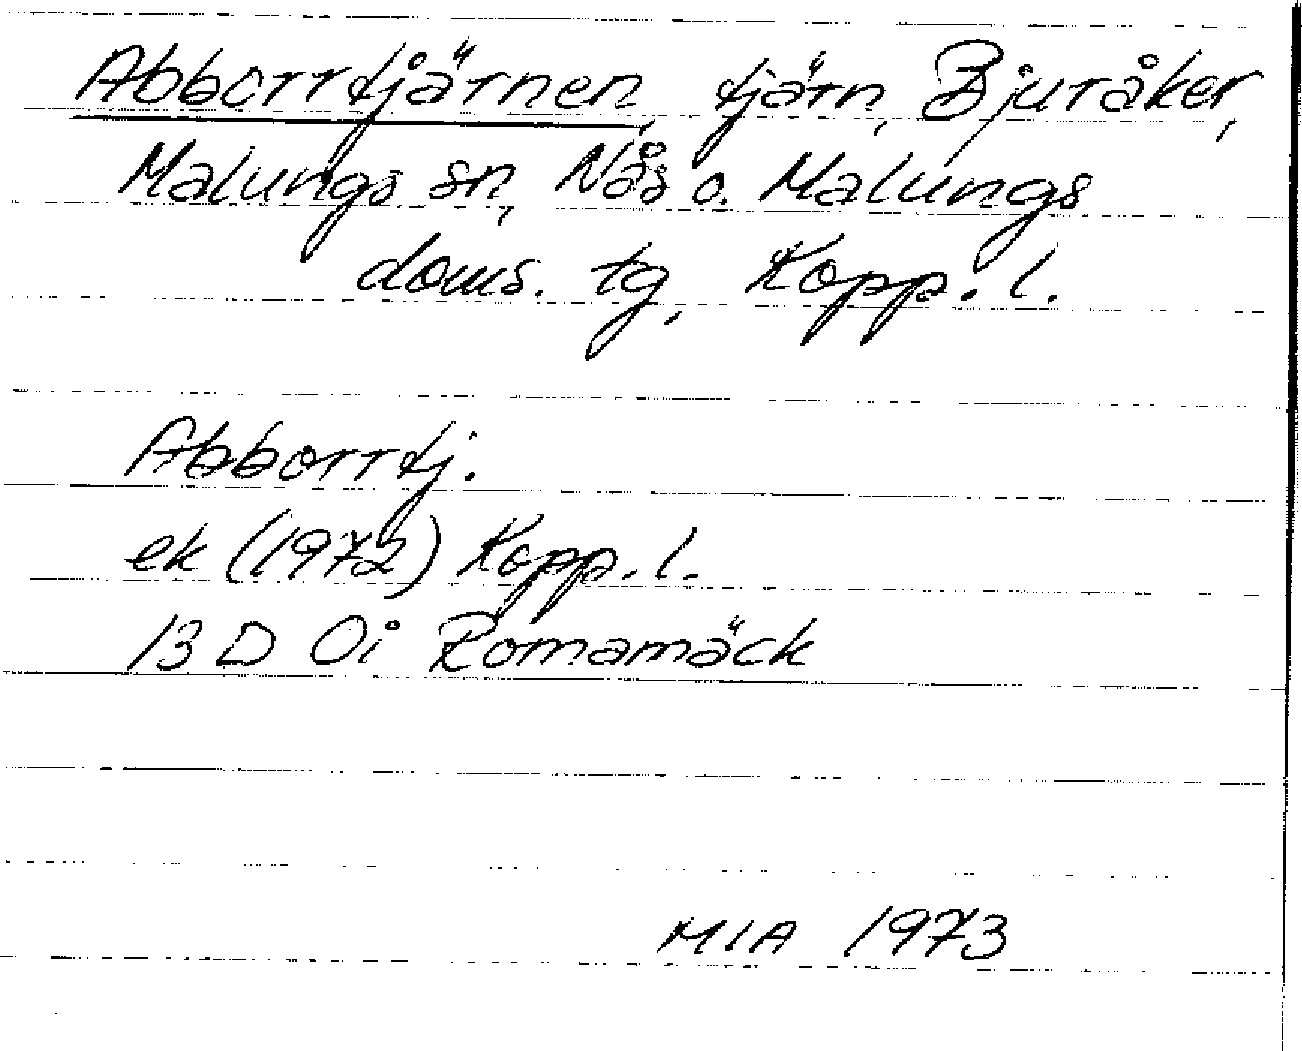 Abborrtjärnen, tjärn, Bjuråker,
Malungs sn, Nås o. Malungs
doms. tg, Kopp. l.
Abborrtj.
ek (1972) Kopp. l.
13 D 0i Romamäck
MIA 1973